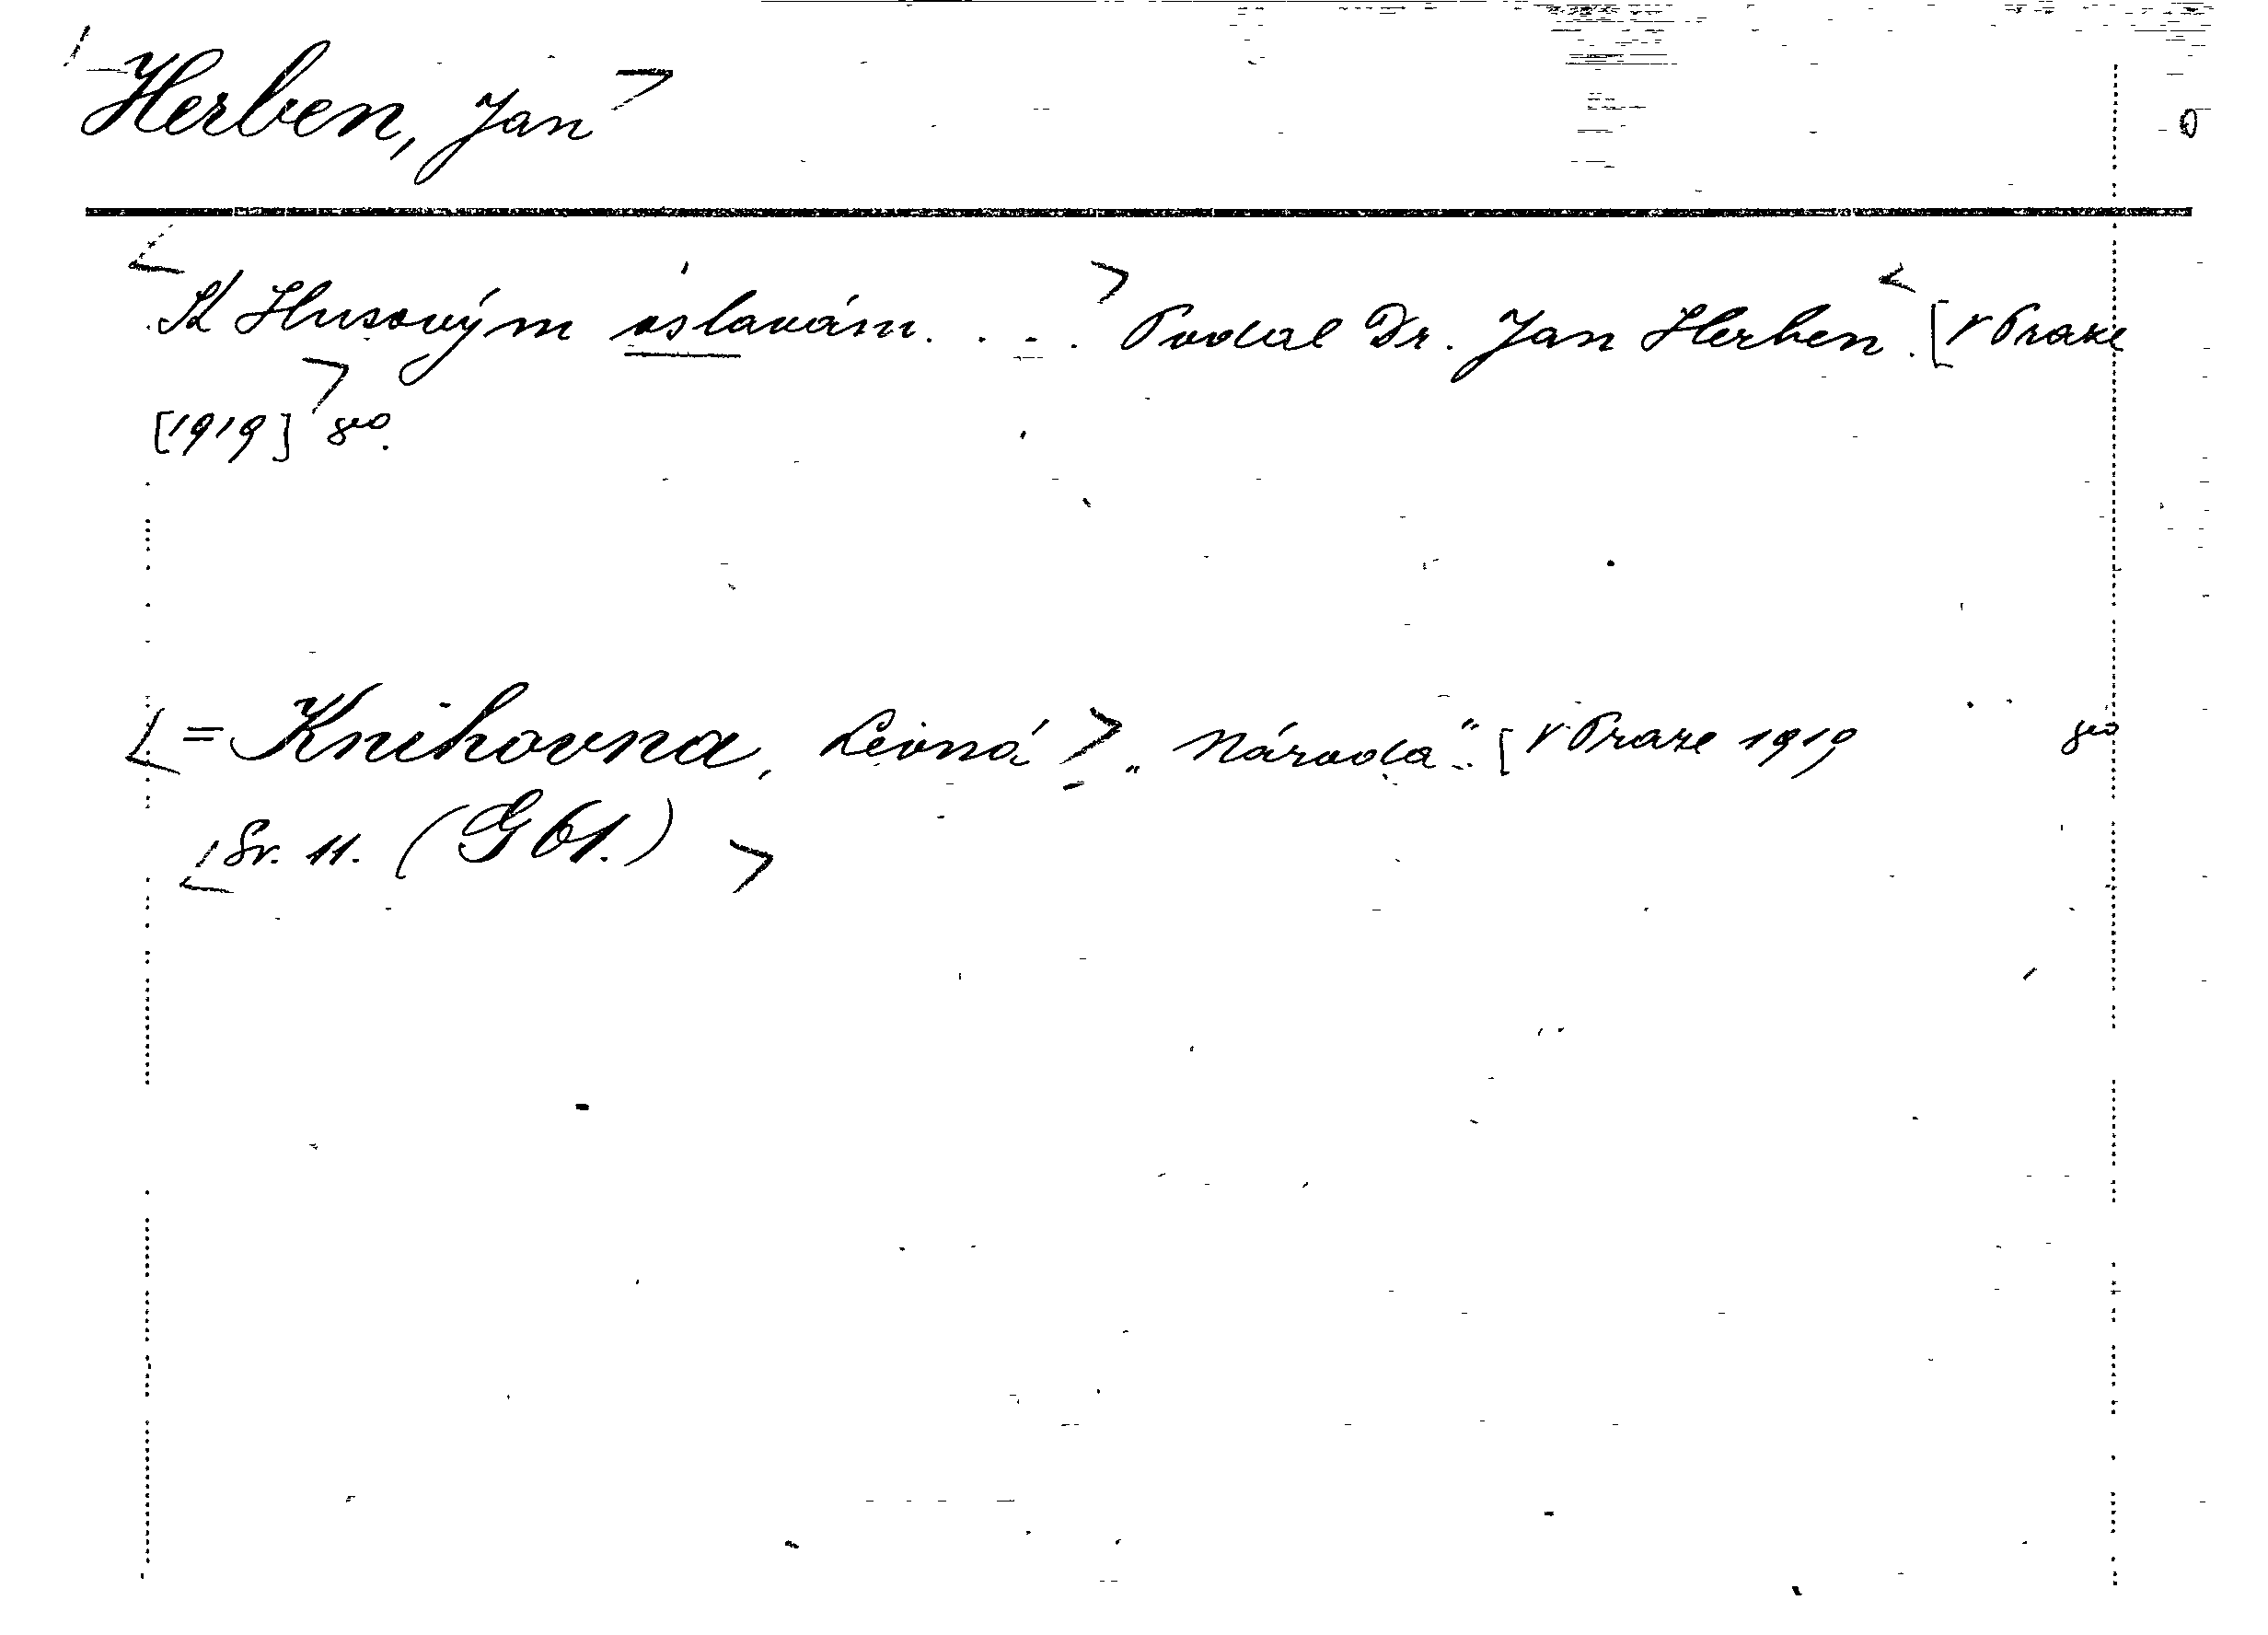 Herben, Jan
K Husovým oslavám. . . . Podal Dr. Jan Herben. [V Praze
[1919] 8vo.
= Knihovna, Levná „Národa“. [V Praze 1919 8vo
Sv. 11. (G 61.)